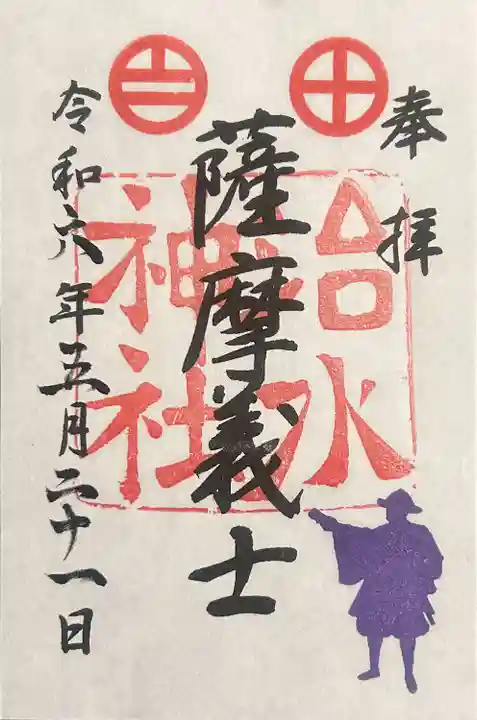 奉拝
薩摩義士
治水
神社
令和六年五月二十一日